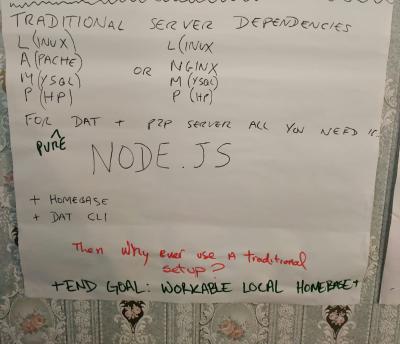 TRADITIONAL SERVER DEPENDENCIES
L(INUX) L(INUX
A(PACHE) OR NGINX
M(YSQL) M(YSQL)
P(HP) P(HP)
FOR ^ DAT + P2P SERVER ALL YOU NEED IS
PURE
NODE.JS
+ HOMEBASE
+ DAT CLI
Then why ever use a traditional
setup?
+END GOAL: WORKABLE LOCAL HOMEBASE+